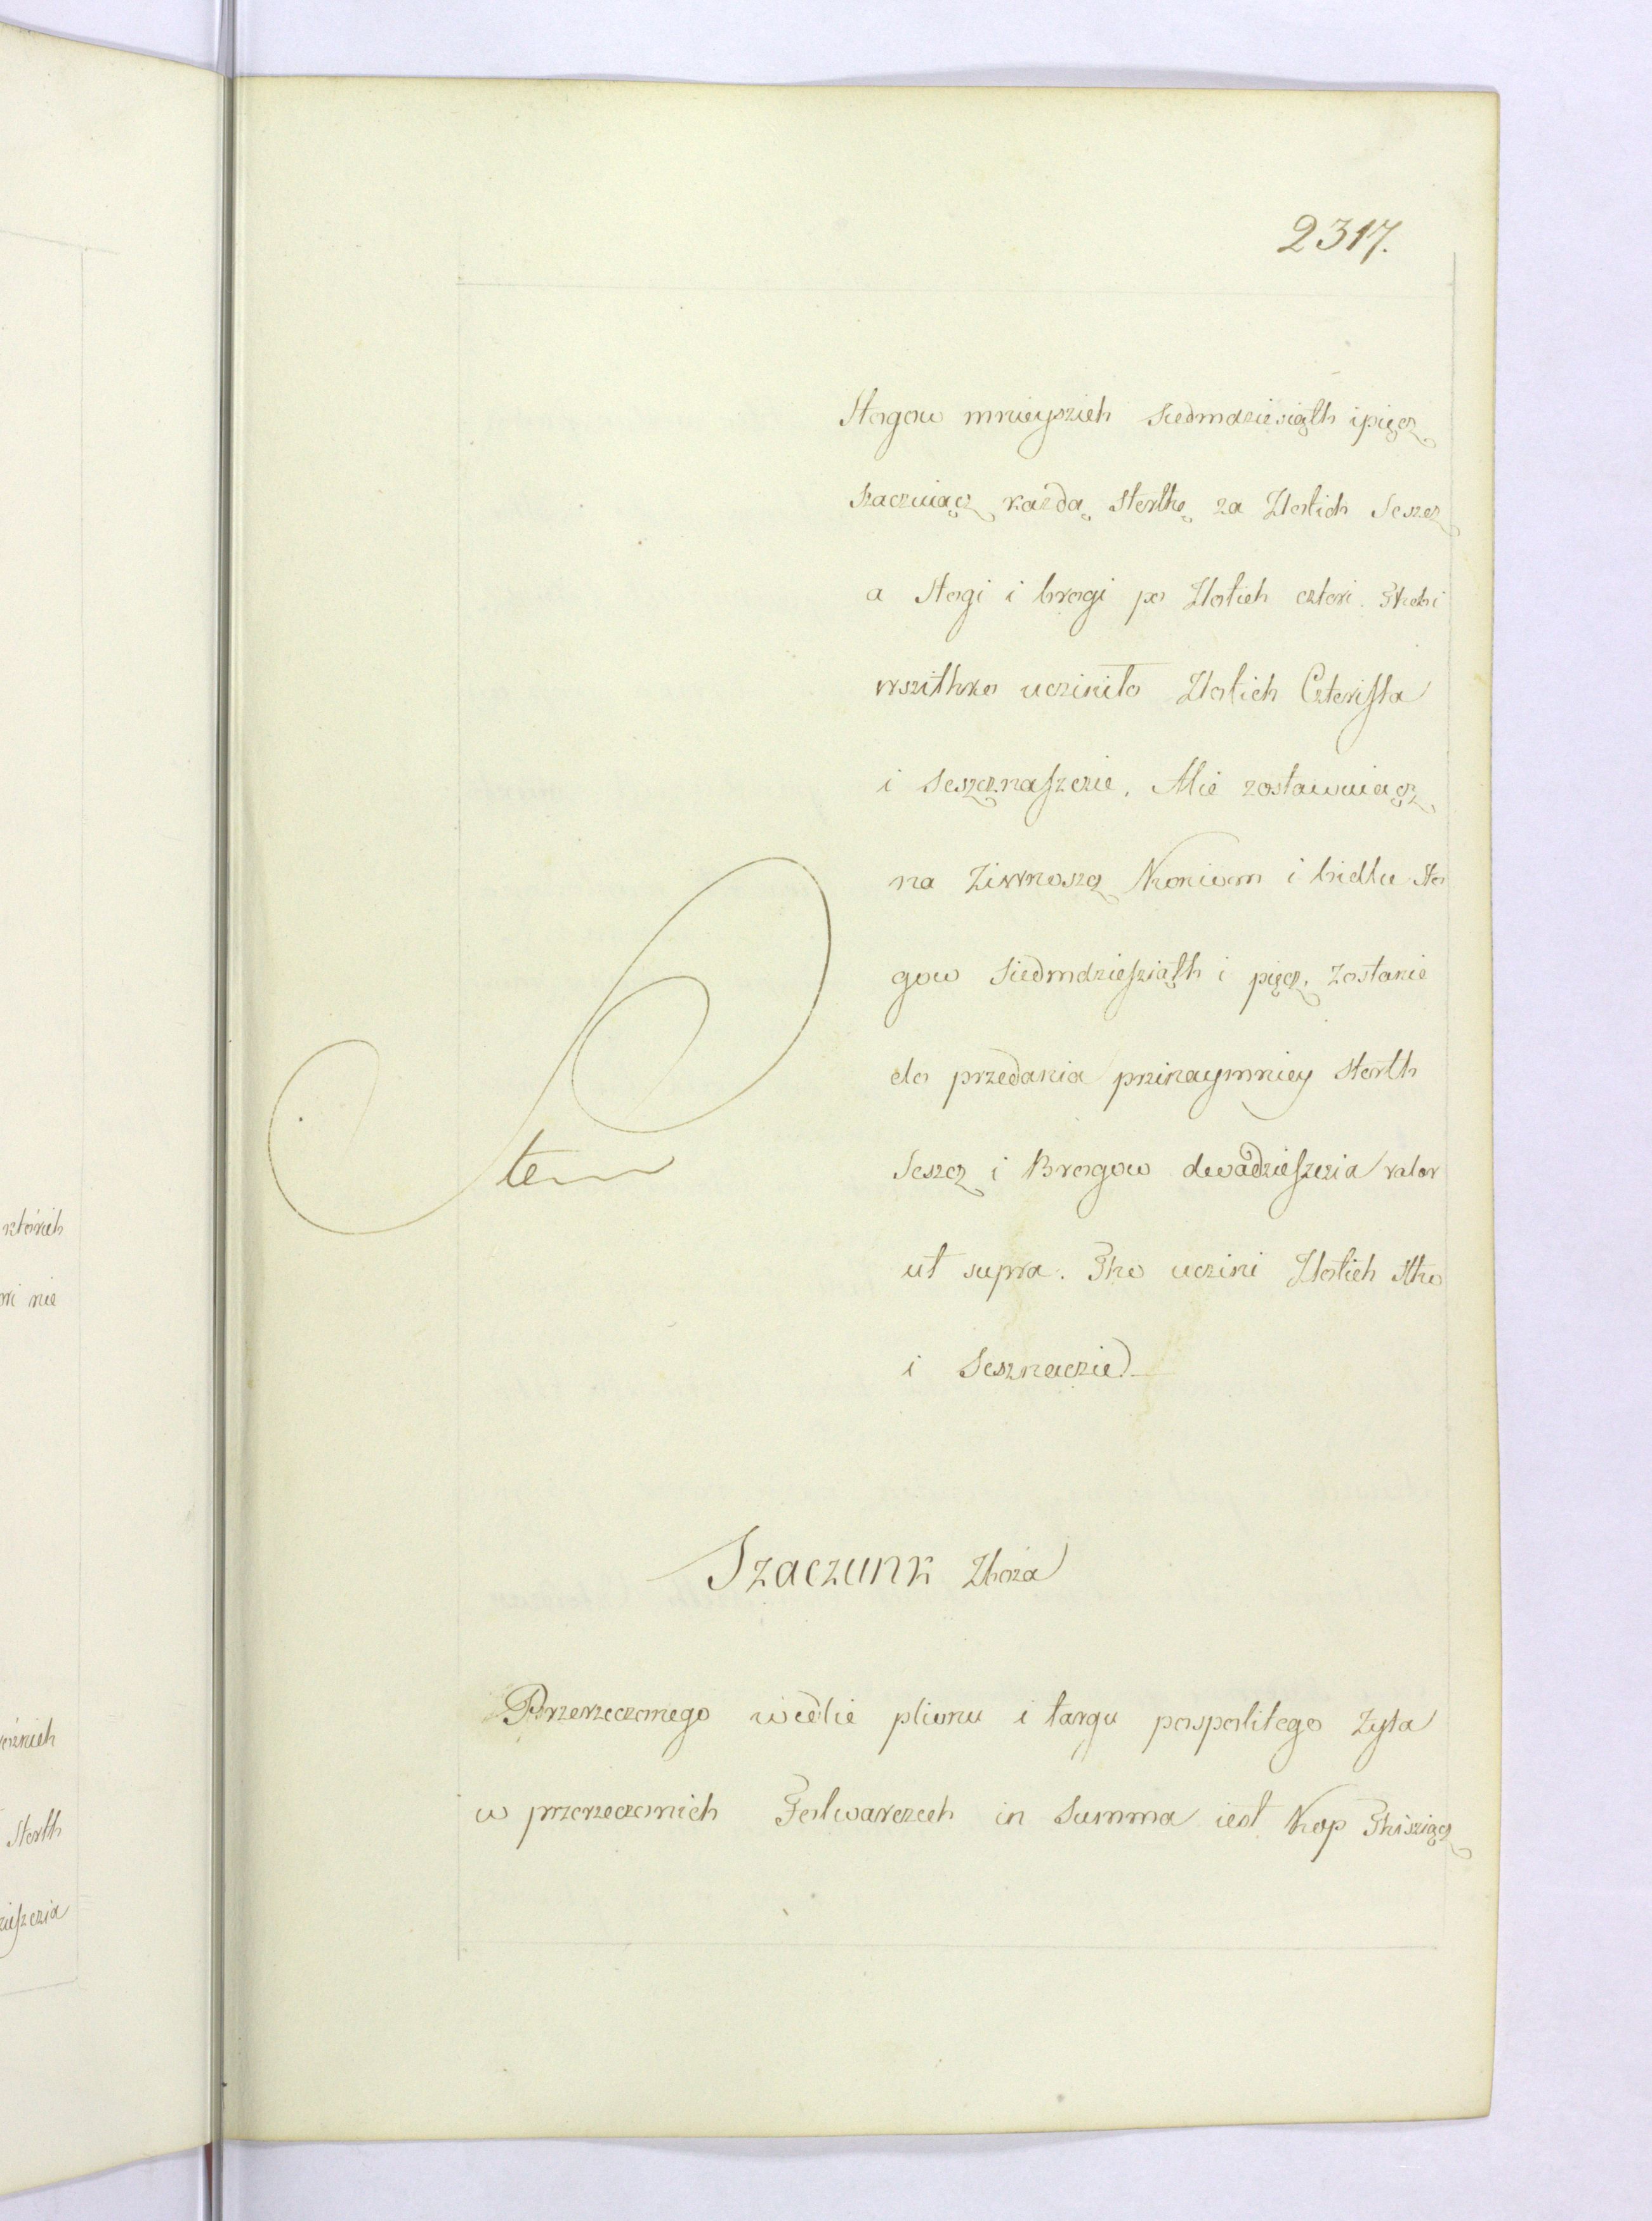 2317.
Stogow mnieyszich Siedmdziesiąth i pięcz
szacziuącz każdą stertkę za Zlotich Seszcz
a Stogi i brogi po Zlotich cztori. Thobi
wszithko uczinilo Zlotich Czterista
i Seszcznaszczie. Alie zostawuiącz
na Ziwnoszcz Koniom i bidlu Sto
gow Siedmdziesziąth i pięcz, zostanie
do przedania przinaymniey sterth
Seszcz i Brogow dwadzieszczia valor
ut supra. Tho uczini Zlotich stho
i Sesznaczie
Item
Szaczunk Zboża
Przerzeczonego wedlie plionu i targu pospolitego Zyta
w przerzeczonich Folwarczech in Summa iest Kop Thisziącz
których
wi nie
Sterth
zieszczia